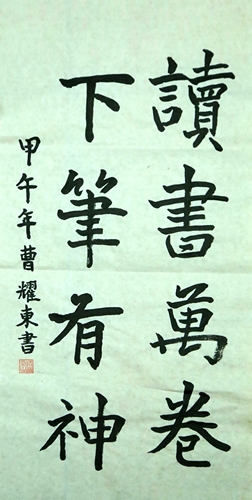 讀書萬卷
下筆有神
甲午年曹耀東書